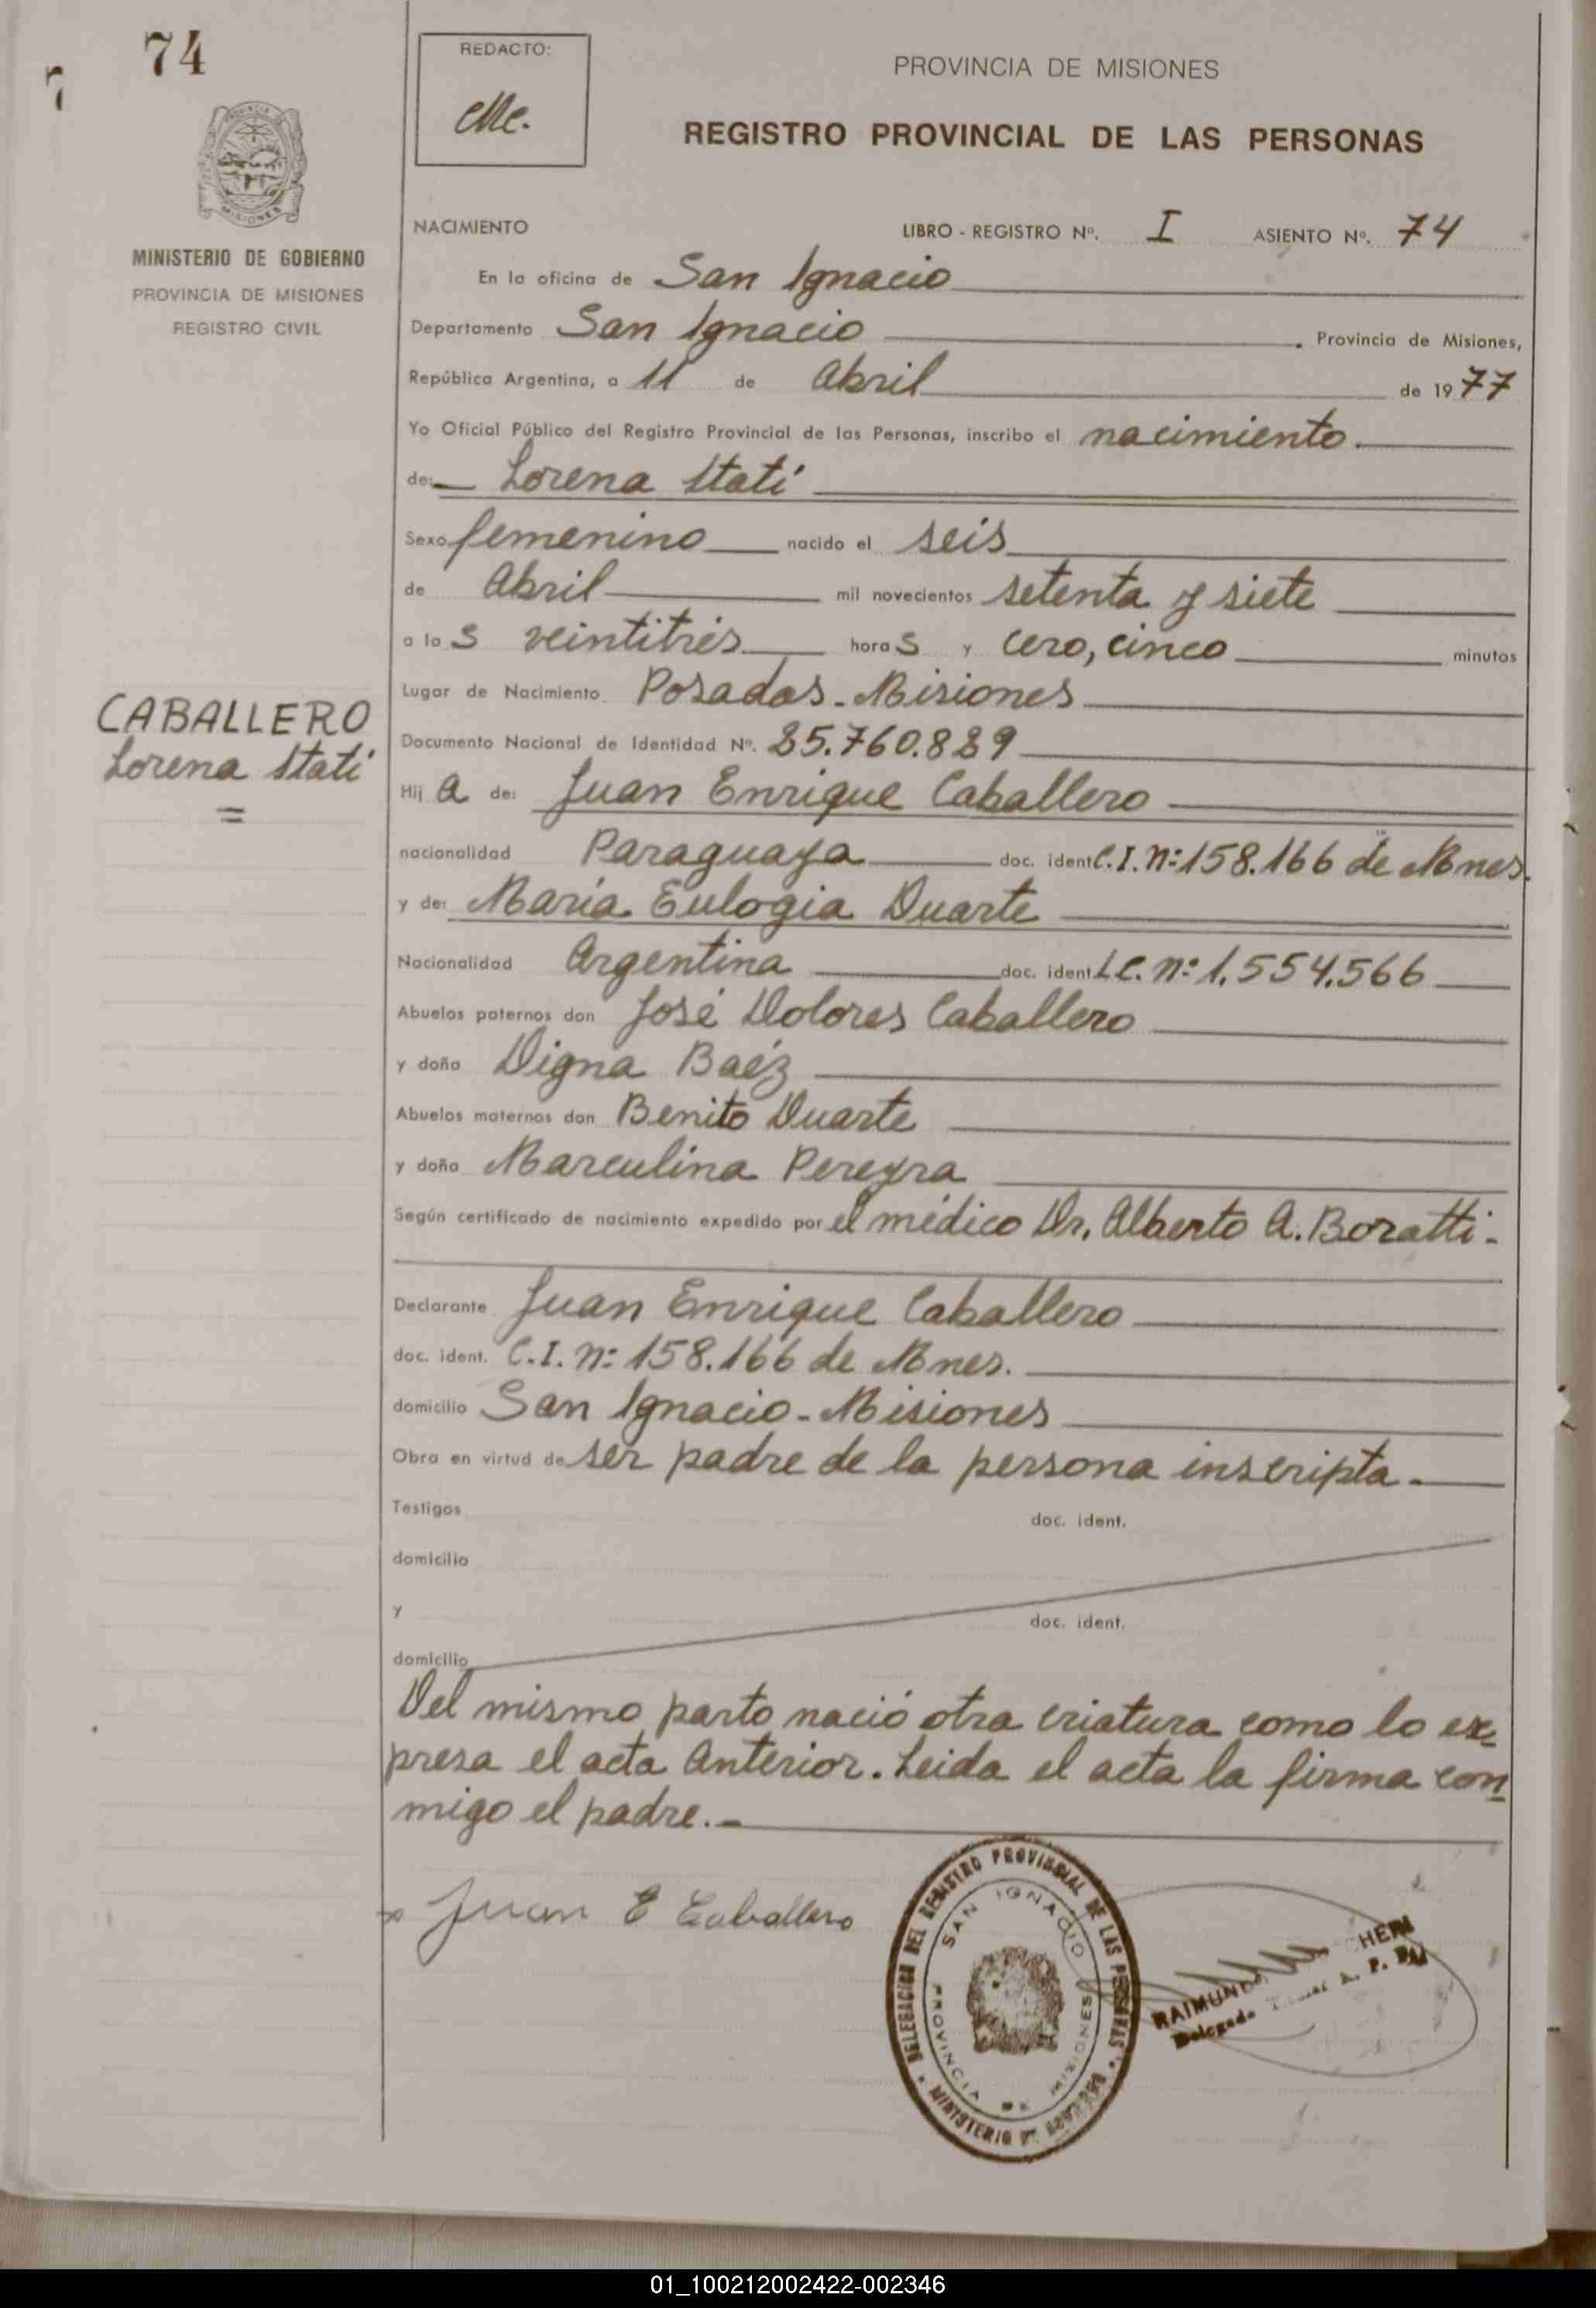 74
REDACTO:
PROVINCIA DE MISIONES
REGISTRO PROVINCIAL DE LAS PERSONAS
MISIONES
MINISTERIO DE GOBIERNO
PROVINCIA DE MISIONES
REGISTRO CIVIL
NACIMIENTO LIBRO - REGISTRO Nº. I ASIENTO Nº. 74
En la oficina de San Ignacio
Departamento San Ignacio . Provincia de Misiones,
República Argentina, a 11 de Abril de 1977
Yo Oficial Público del Registro Provincial de las Personas, inscribo el nacimiento.
de: Lorena Itatí
Sexo femenino nacido el seis
de Abril mil novecientos setenta y siete
a las veintitrés horas y cero, cinco minutos
Lugar de Nacimiento Posadas - Misiones
CABALLERO
Lorena Itatí
=
Documento Nacional de Identidad Nº. 25.760.829
Hija de: Juan Enrique Caballero
nacionalidad Paraguaya doc. ident. C.I. Nº 158.166 de Mnes.
y de: María Eulogia Duarte
Nacionalidad Argentina doc. ident. L.C. Nº 1.554.566
Abuelos paternos don José Dolores Caballero
y doña Digna Baéz
Abuelos maternos don Benito Duarte
y doña Marculina Pereyra
Según certificado de nacimiento expedido por el médico Dr. Alberto A. Boratti.
Declarante Juan Enrique Caballero
doc. ident. C.I. Nº 158.166 de Mnes.
domicilio San Ignacio - Misiones
Obra en virtud de ser padre de la persona inscripta.
Testigos doc. ident.
domicilio
y doc. ident.
domicilio
Del mismo parto nació otra criatura como lo ex
presa el acta Anterior. Leida el acta la firma con
migo el padre.
Juan E Caballero
DELEGACION DEL REGISTRO PROVINCIAL DE LAS PERSONAS
SAN IGNACIO
PROVINCIA DE MISIONES
MINISTERIO DE GOBIERNO
Delegado
01_100212002422-002346